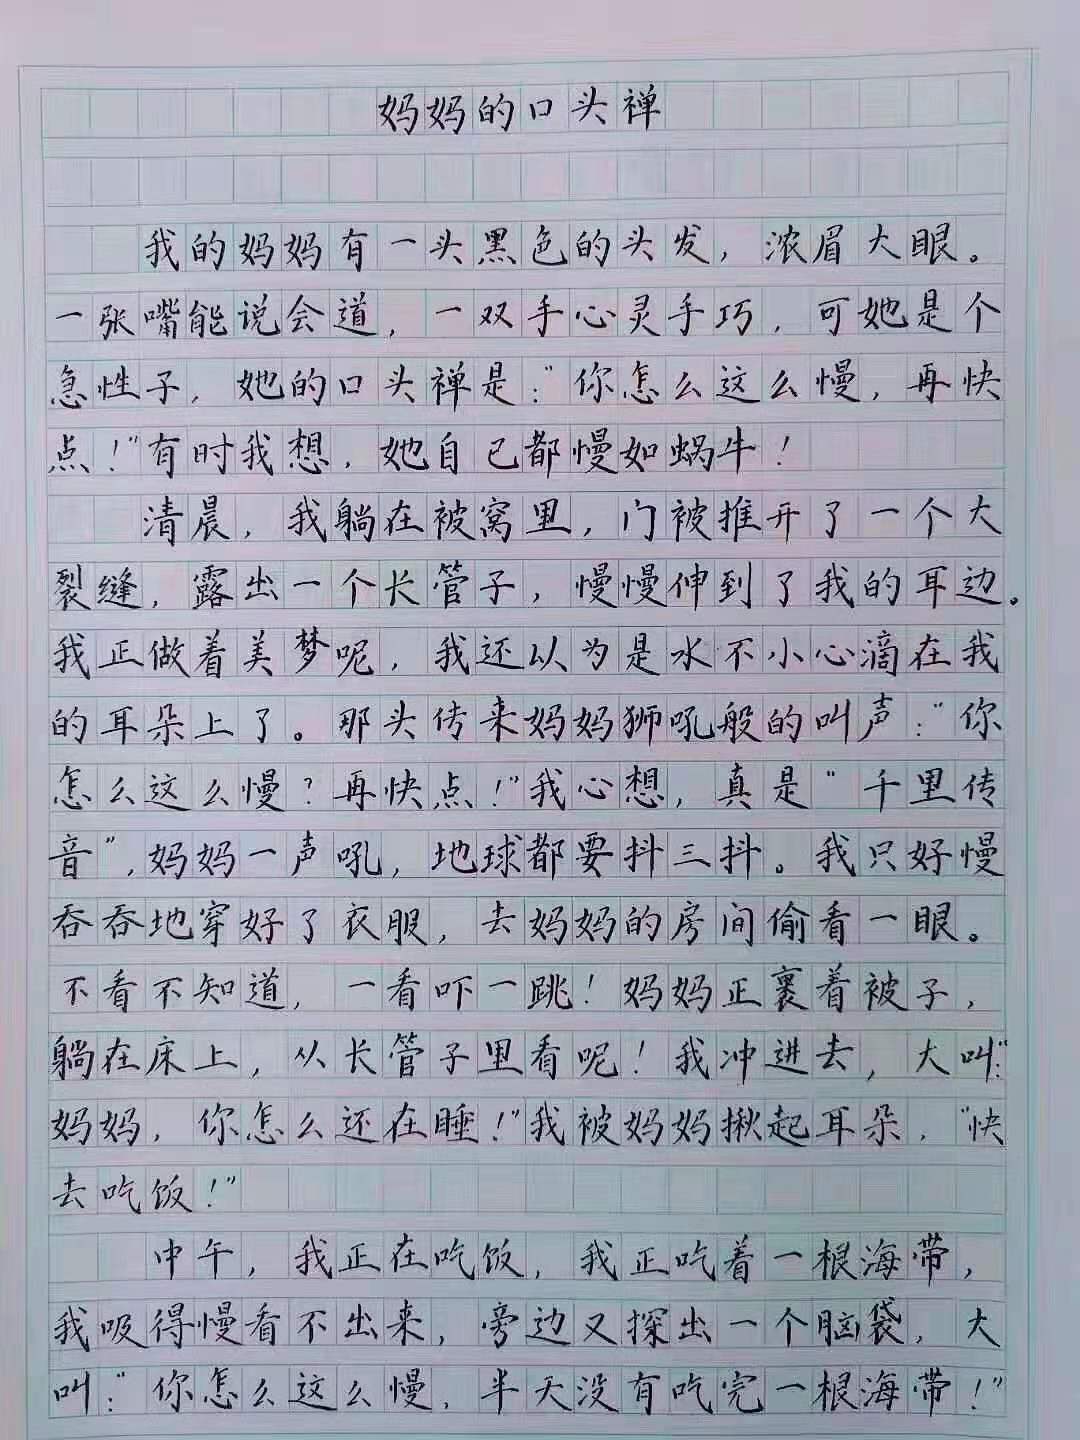 妈妈的口头禅
我的妈妈有一头黑色的头发，浓眉大眼。
一张嘴能说会道，一双手心灵手巧，可她是个
急性子，她的口头禅是：“你怎么这么慢，再快
点！”有时我想，她自己都慢如蜗牛！
清晨，我躺在被窝里，门被推开了一个大
裂缝，露出一个长管子，慢慢伸到了我的耳边。
我正做着美梦呢，我还以为是水不小心滴在我
的耳朵上了。那头传来妈妈狮吼般的叫声：“你
怎么这么慢？再快点！”我心想，真是“千里传
音”，妈妈一声吼，地球都要抖三抖。我只好慢
吞吞地穿好了衣服，去妈妈的房间偷看一眼。
不看不知道，一看吓一跳！妈妈正裹着被子，
躺在床上，从长管子里看呢！我冲进去，大叫：“
妈妈，你怎么还在睡！”我被妈妈揪起耳朵，“快
去吃饭！”
中午，我正在吃饭，我正吃着一根海带，
我吸得慢看不出来，旁边又探出一个脑袋，大
叫：“你怎么这么慢，半天没有吃完一根海带！”